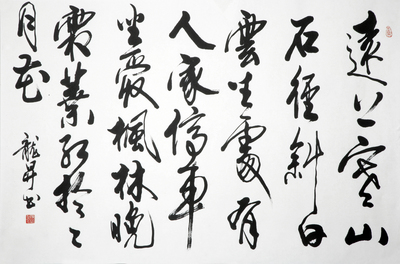 遠上寒山
石徑斜白
雲生處有
人家停車
坐愛楓林晚
霜葉紅於二
月花
龍昇书